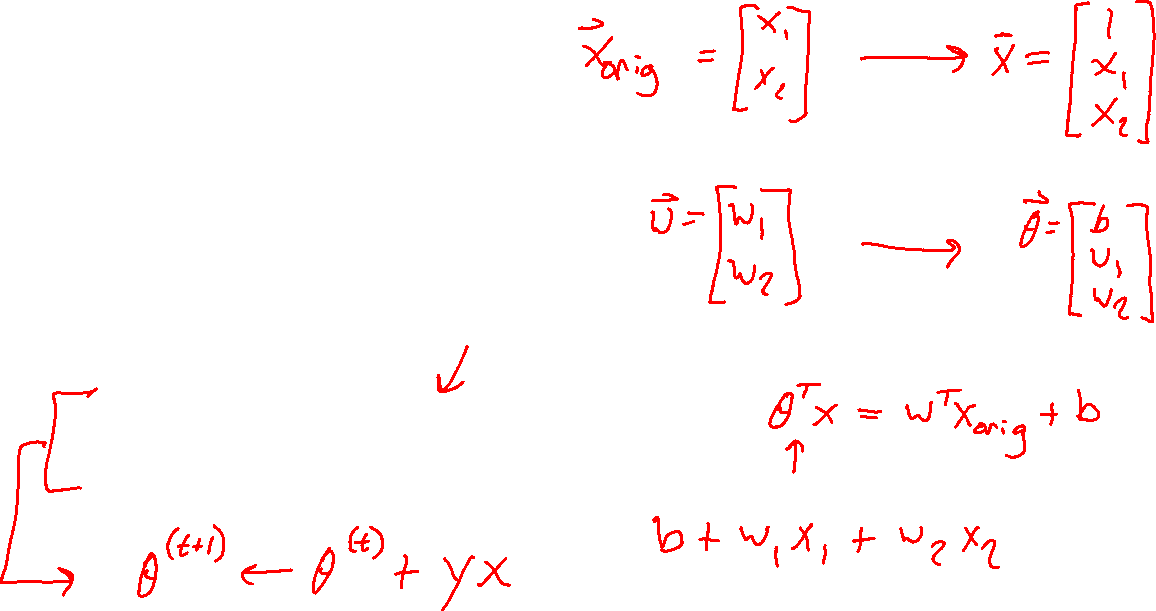 x⃗_orig = [x₁ x₂] ⟶ x̄ = [1 x₁ x₂]
w⃗ = [w₁ w₂] ⟶ θ⃗ = [b w₁ w₂]
θᵀx = wᵀx_orig + b
b + w₁x₁ + w₂x₂
θ^(t+1) ← θ^(t) + yx